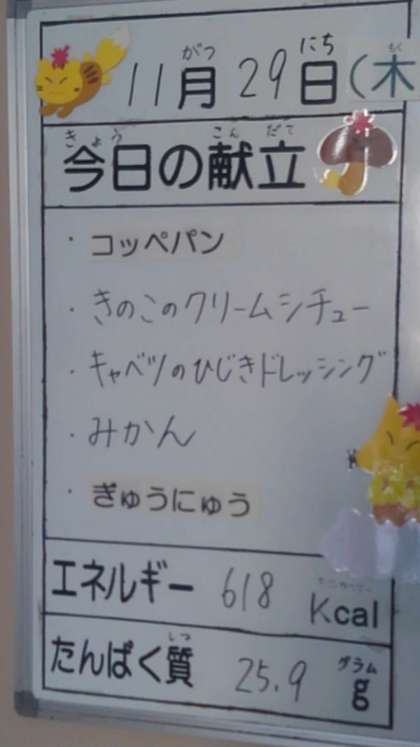 がつ にち もく
11月29日(木
きょう こんだて
今日の献立
・コッペパン
・きのこのクリームシチュー
・キャベツのひじきドレッシング
・みかん
・ぎゅうにゅう
エネルギー 618 Kcal
しつ グラム
たんぱく質 25.9 g